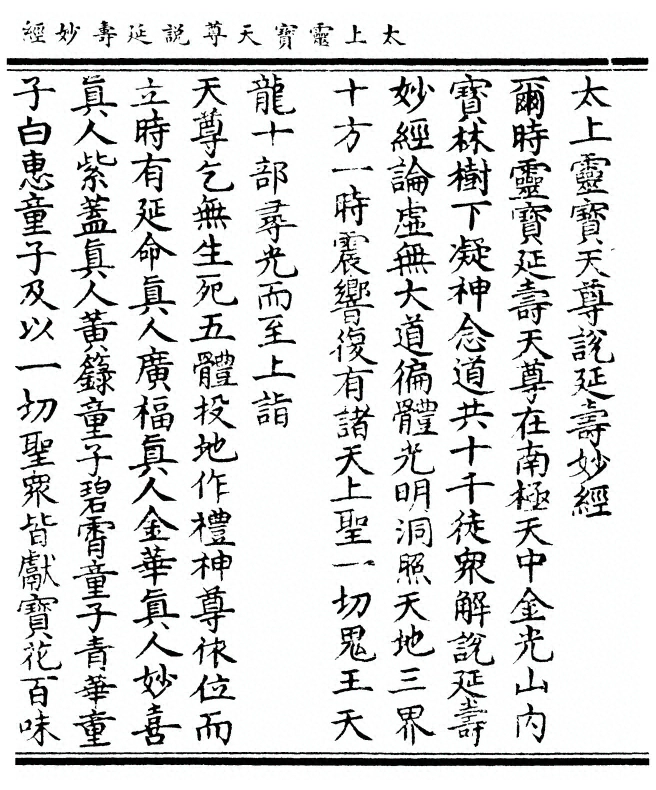 太上靈寶天尊說延壽妙經
太上靈寶天尊說延壽妙經
爾時靈寶延壽天尊在南極天中金光山內
寶林樹下凝神念道共十千徒衆解說延壽
妙經論虛無大道徧體光明洞照天地三界
十方一時震響復有諸天上聖一切鬼王天
龍十部尋光而至上詣
天尊乞無生死五體投地作禮神尊依位而
立時有延命眞人廣福眞人金華眞人妙喜
眞人紫蓋眞人黃籙童子碧霄童子青華童
子白惠童子及以一切聖衆皆獻寶花百味